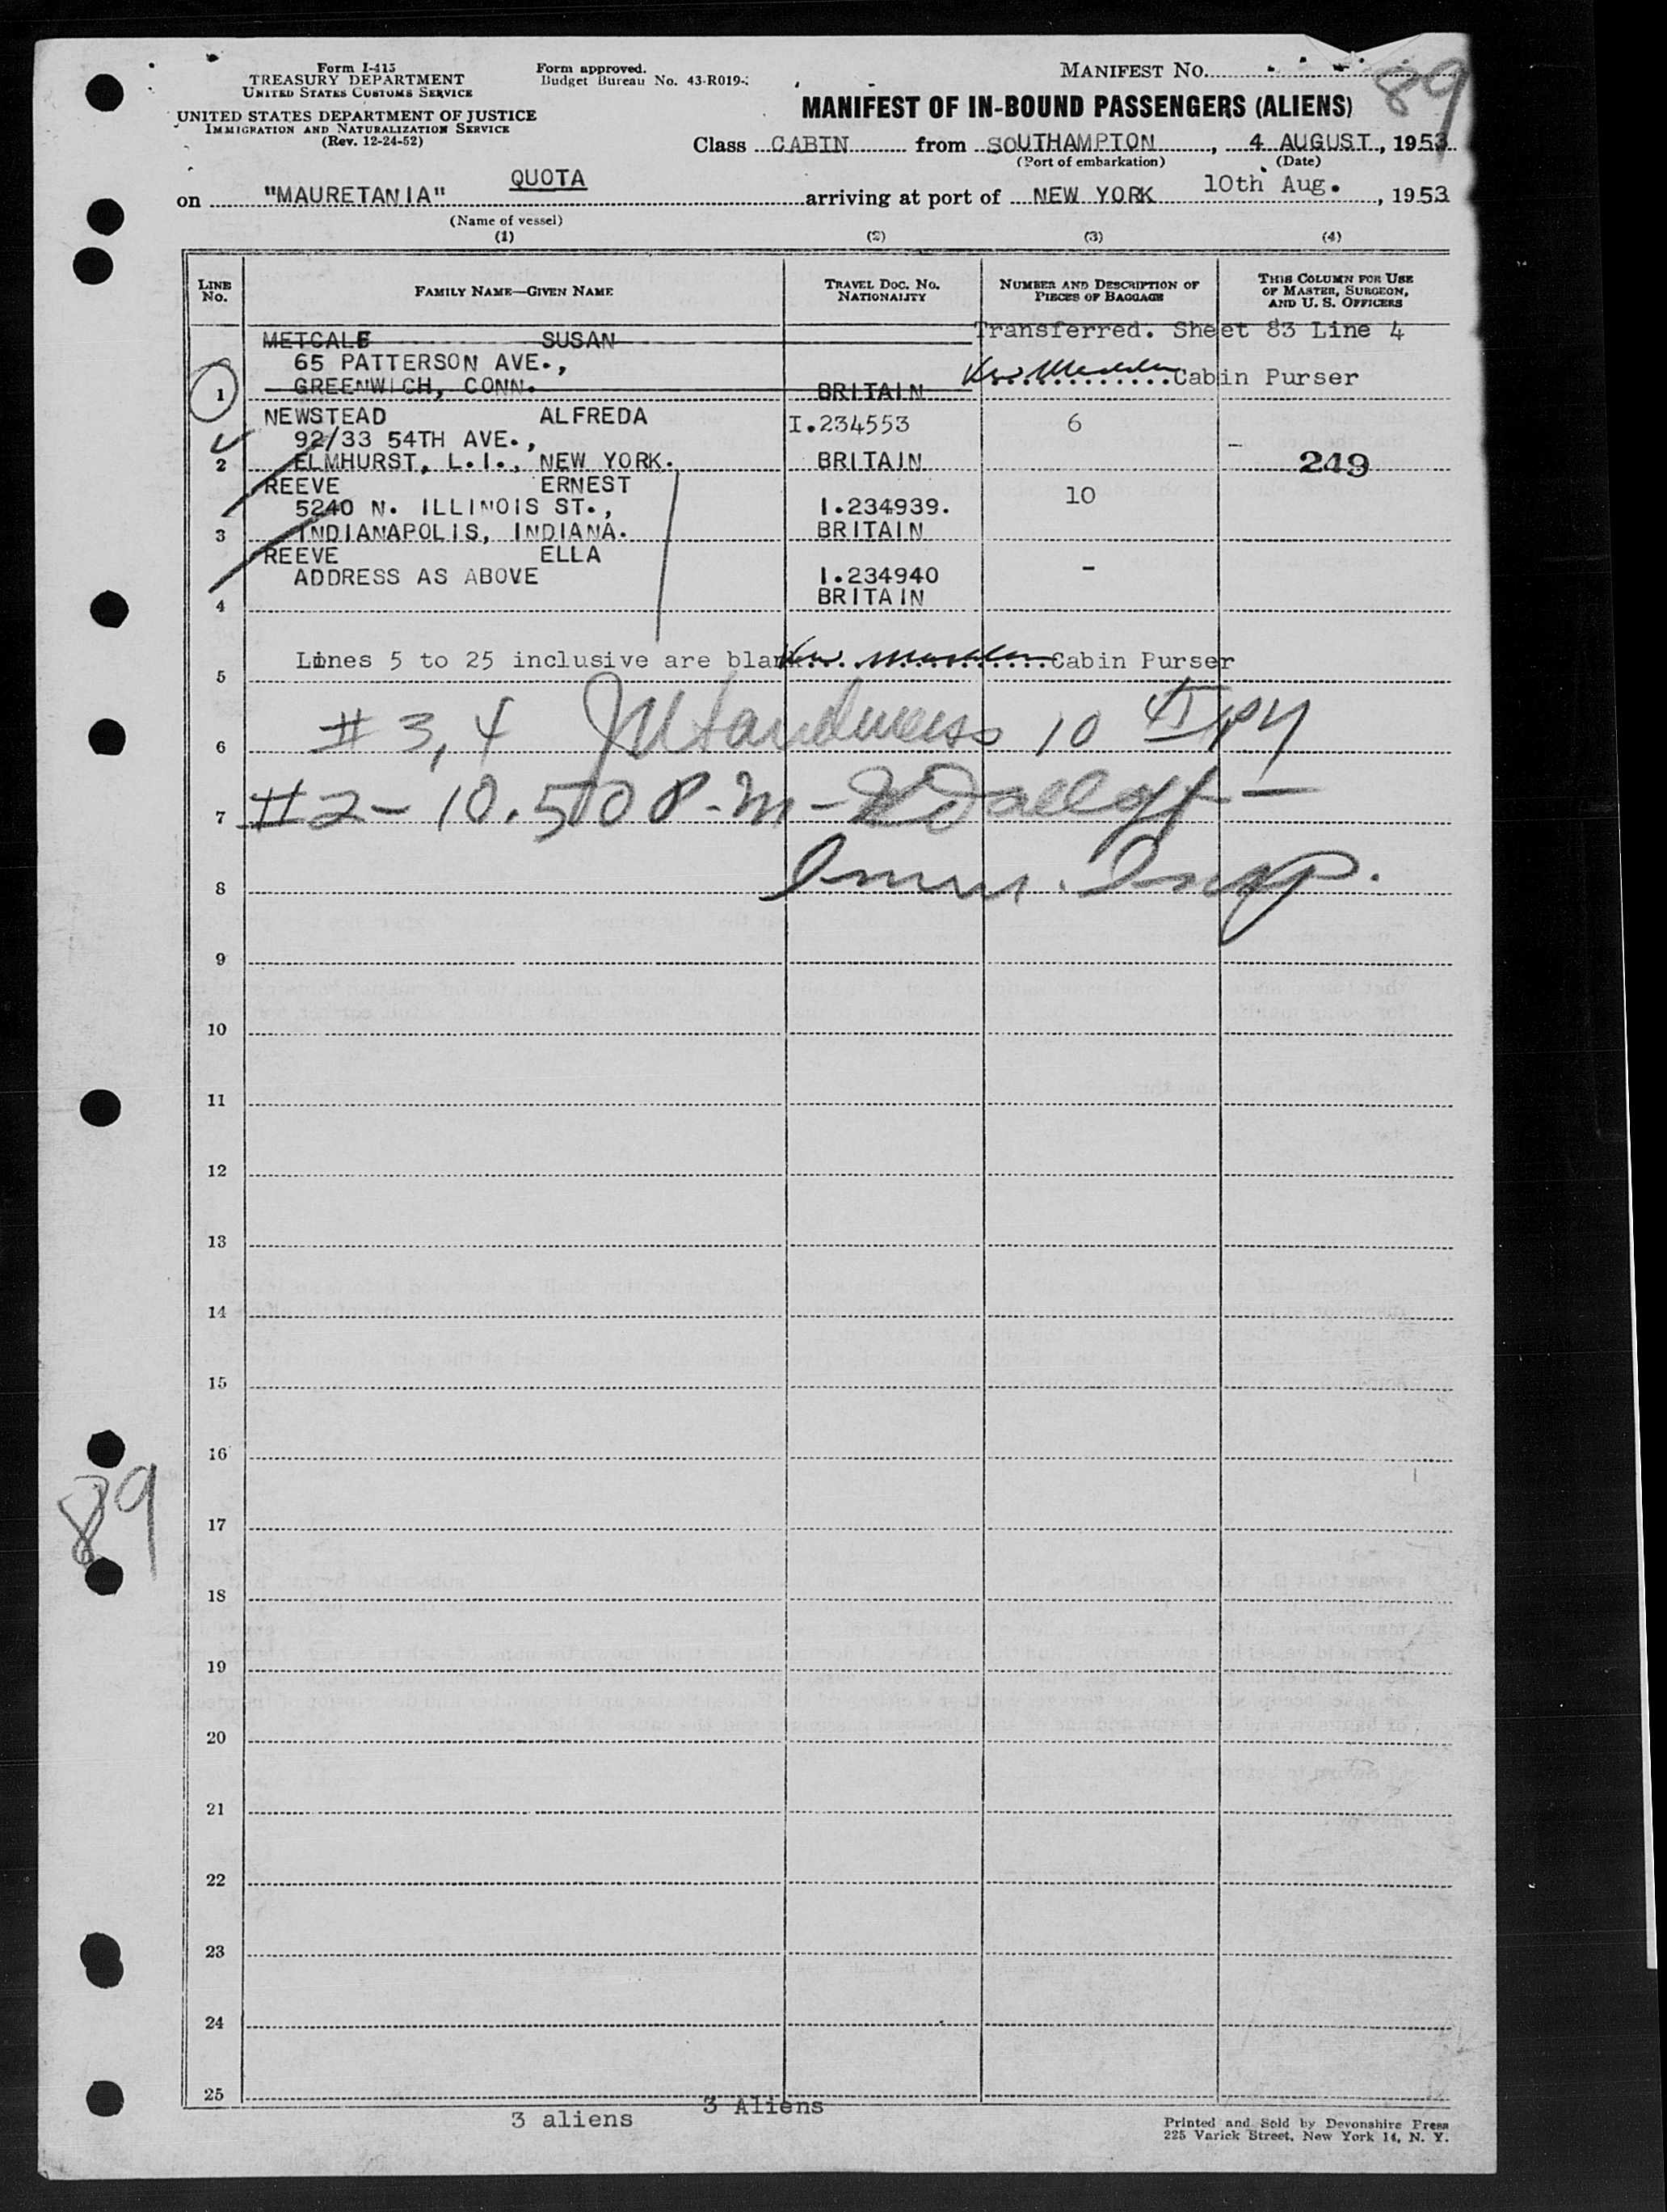 Form I-415
TREASURY DEPARTMENT
UNITED STATES CUSTOMS SERVICE
UNITED STATES DEPARTMENT OF JUSTICE
IMMIGRATION AND NATURALIZATION SERVICE
(Rev. 12-24-52)
Form approved.
Budget Bureau No. 43-R019-
MANIFEST NO.
89
MANIFEST OF IN-BOUND PASSENGERS (ALIENS)
Class CABIN from SOUTHAMPTON, 4 AUGUST, 1953
(Port of embarkation) (Date)
QUOTA
on "MAURETANIA" arriving at port of NEW YORK 10th Aug., 1953
(Name of vessel)
(1) (2) (3) (4)
LINE NO.
FAMILY NAME—GIVEN NAME
TRAVEL DOC. NO. NATIONALITY
NUMBER AND DESCRIPTION OF PIECES OF BAGGAGE
THIS COLUMN FOR USE OF MASTER, SURGEON, AND U. S. OFFICERS
METCALF SUSAN Transferred. Sheet 83 Line 4
65 PATTERSON AVE.,
1 GREENWICH, CONN. BRITAIN Cabin Purser
NEWSTEAD ALFREDA I.234553 6
92/33 54TH AVE.,
2 ELMHURST, L.I., NEW YORK. BRITAIN 249
REEVE ERNEST 10
5240 N. ILLINOIS ST., I.234939.
3 INDIANAPOLIS, INDIANA. BRITAIN
REEVE ELLA
ADDRESS AS ABOVE I.234940 -
4 BRITAIN
Lines 5 to 25 inclusive are blank Cabin Purser
5
6 # 3, 4 10 PM
7 #2 - 10.50 P.M -
8 Imm. Insp.
9
10
11
12
13
14
15
16
89
17
18
19
20
21
22
23
24
25
3 aliens 3 Aliens
Printed and Sold by Devonshire Press
225 Varick Street, New York 14, N. Y.